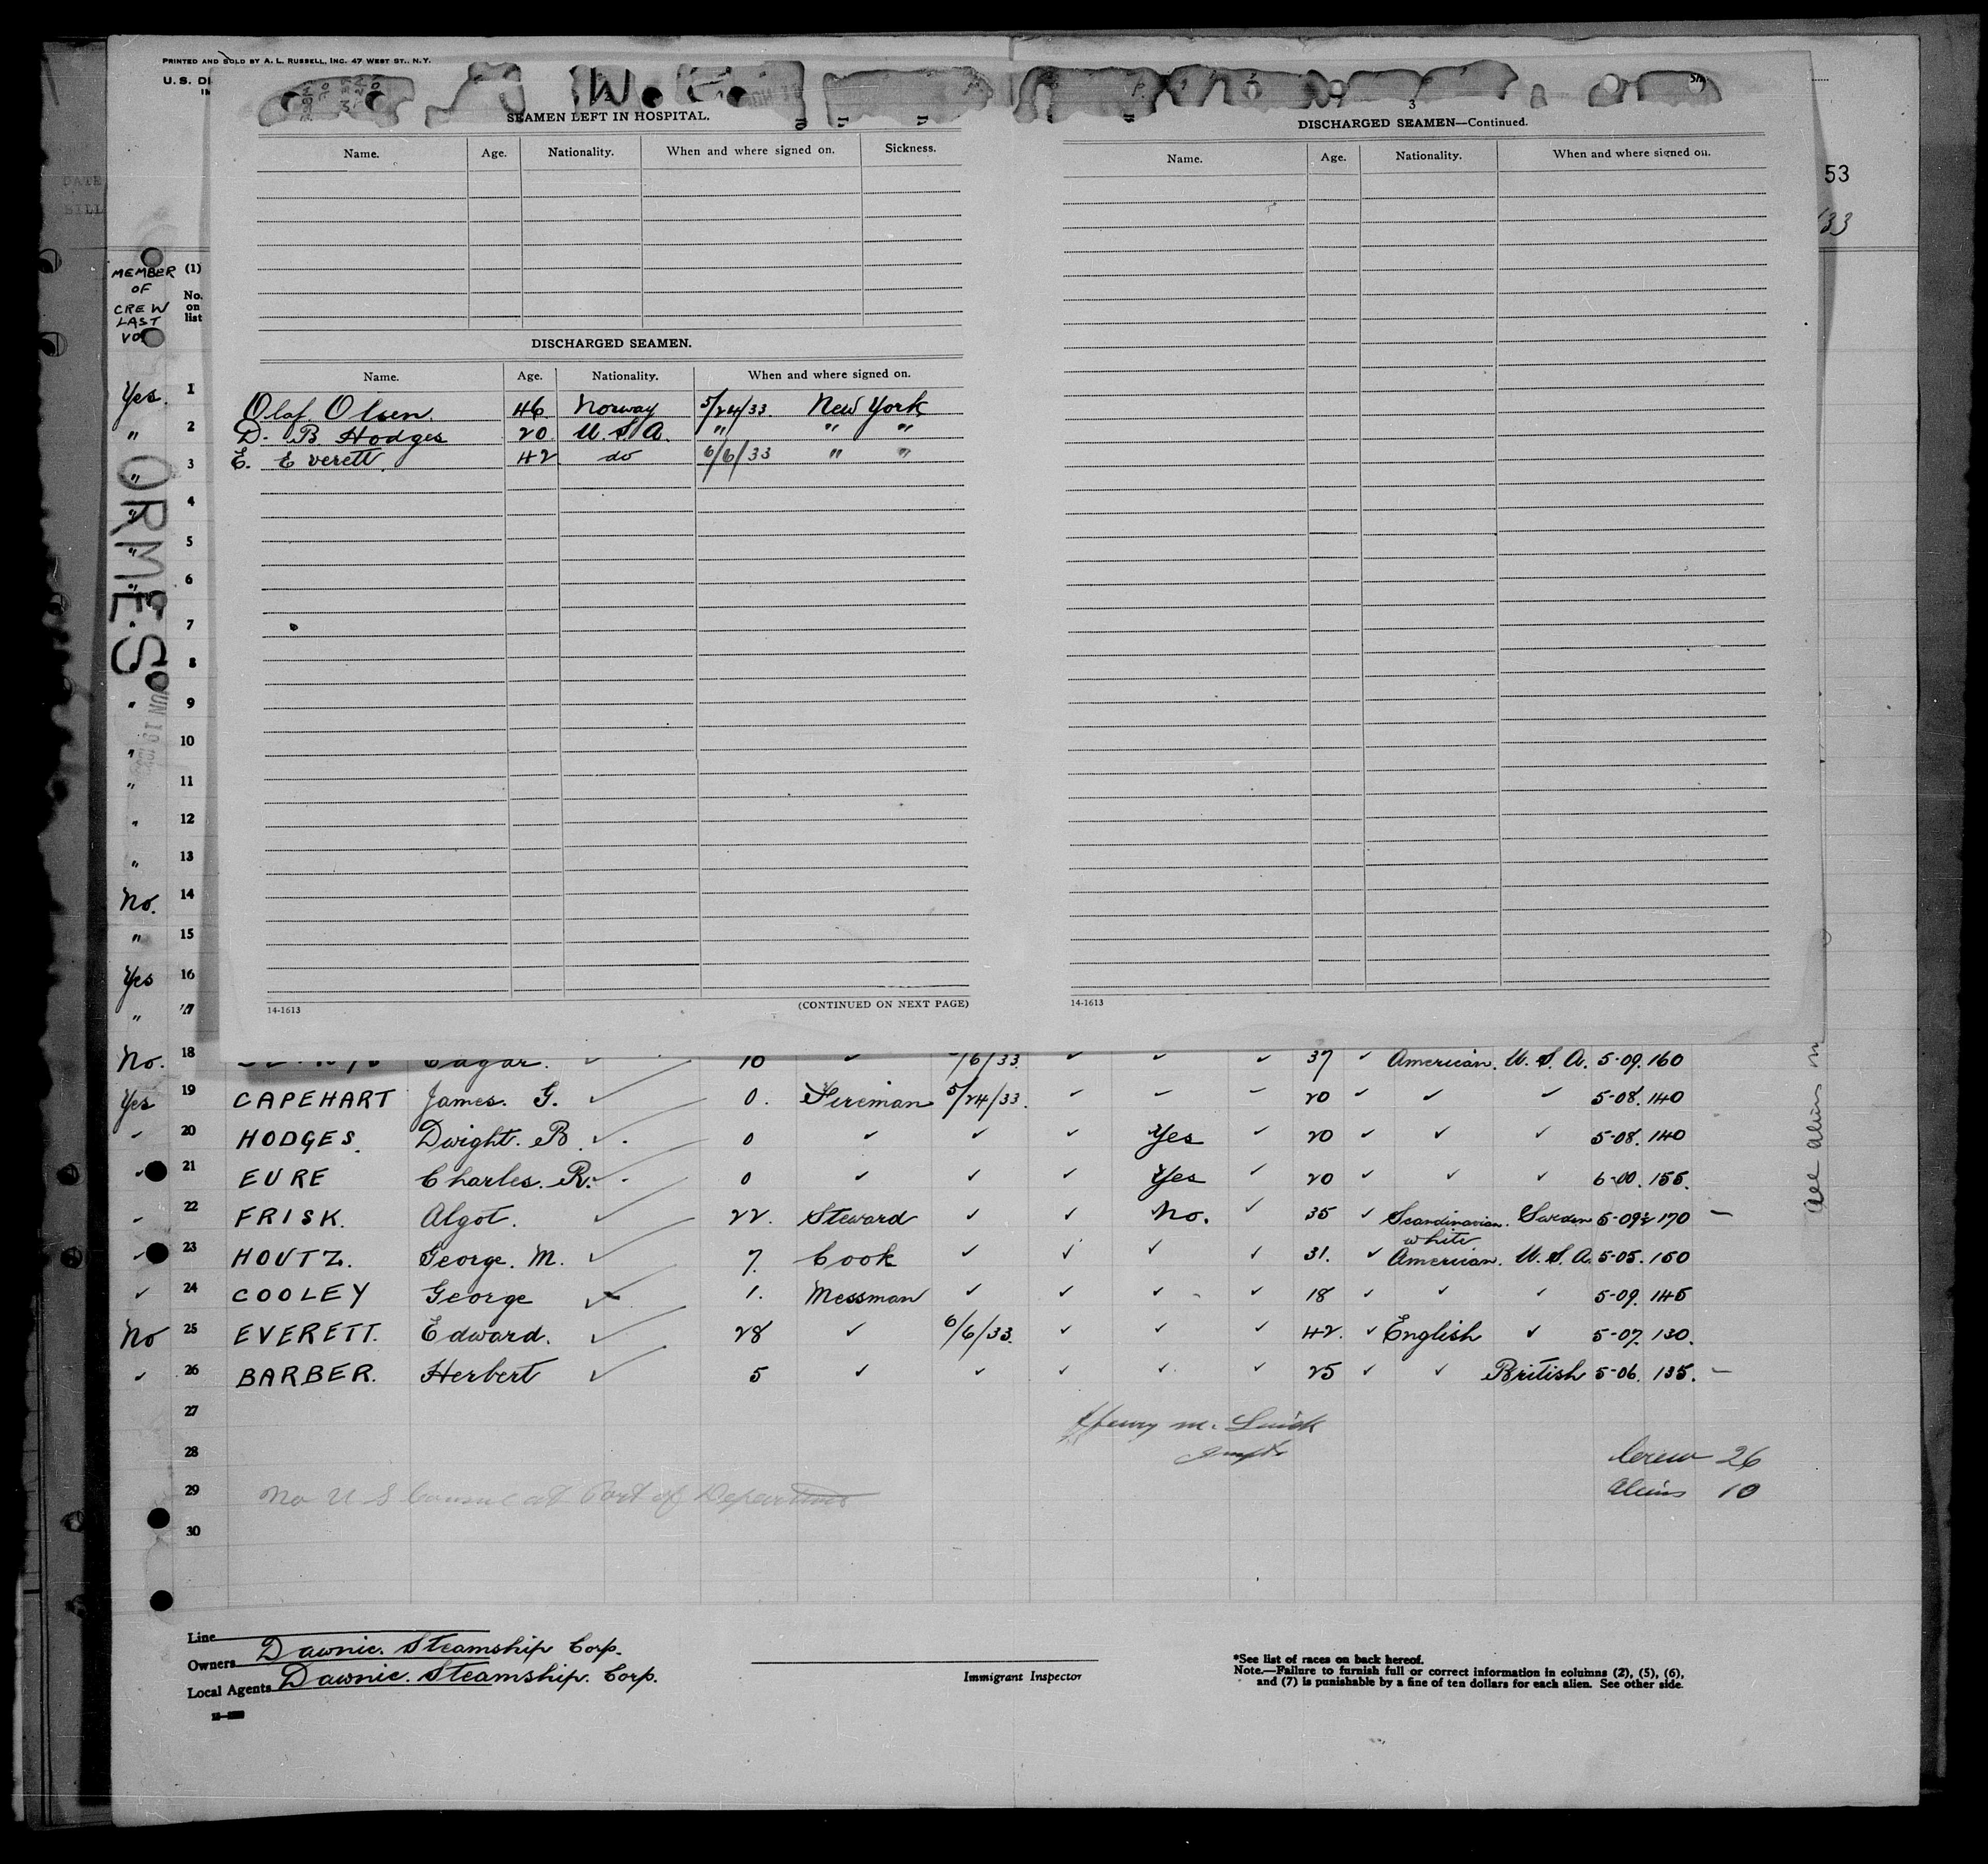 PRINTED AND SOLD BY A. L. RUSSELL, INC. 47 WEST ST., N.Y.
U. S. DE
53
/33
SEAMEN LEFT IN HOSPITAL.
Name. Age. Nationality. When and where signed on. Sickness.
DISCHARGED SEAMEN.
Name. Age. Nationality. When and where signed on.
Olaf Olsen 46 Norway 5/24/33. New York
D. B. Hodges 20 U.S.A. " " "
E. Everett 42 do 6/6/33 " "
14-1613 (CONTINUED ON NEXT PAGE)
3
DISCHARGED SEAMEN—Continued.
Name. Age. Nationality. When and where signed on.
14-1613
DATE
BILL
MEMBER OF CREW LAST VO
(1) No. on list
ORMES
Yes. 1
" 2
" 3
" 4
" 5
" 6
" 7
8
" 9
" 10
" 11
" 12
" 13
No. 14
" 15
Yes 16
" 17
No. 18 Edgar. ✓ 10 ✓ /6/33. ✓ ✓ ✓ 37 ✓ American. U. S. A. 5-09. 160
Yes 19 CAPEHART James. G. ✓ 0. Fireman 5/24/33. ✓ – – 20 ✓ ✓ ✓ 5-08. 140
✓ 20 HODGES. Dwight. B. ✓ 0 ✓ ✓ ✓ Yes ✓ 20 ✓ ✓ ✓ 5-08. 140
✓ 21 EURE Charles. R. ✓ 0 ✓ ✓ ✓ Yes ✓ 20 ✓ ✓ ✓ 6-00. 155.
✓ 22 FRISK. Algot. ✓ 22. Steward ✓ ✓ No. ✓ 35 ✓ Scandinavian. Sweden 5-09½ 170 –
✓ 23 HOUTZ. George. M. ✓ 7. Cook ✓ ✓ ✓ ✓ 31. ✓ white American. U. S. A. 5-05. 150
✓ 24 COOLEY George ✓ 1. Messman ✓ ✓ ✓ ✓ 18 ✓ ✓ ✓ 5-09. 145
No 25 EVERETT. Edward. ✓ 28 ✓ 6/6/33. ✓ ✓ ✓ 42. ✓ English ✓ 5-07. 130.
✓ 26 BARBER. Herbert ✓ 5 ✓ ✓ ✓ ✓ ✓ 25 ✓ ✓ British 5-06. 135. –
27
28
29
30
Henry M.
Crew 26
Aliens 10
No U S Consul at Port of Departure
All aliens
Line
Owners Dawnic. Steamship Corp.
Local Agents Dawnic. Steamship. Corp.
Immigrant Inspector
*See list of races on back hereof.
Note.—Failure to furnish full or correct information in columns (2), (5), (6),
and (7) is punishable by a fine of ten dollars for each alien. See other side.